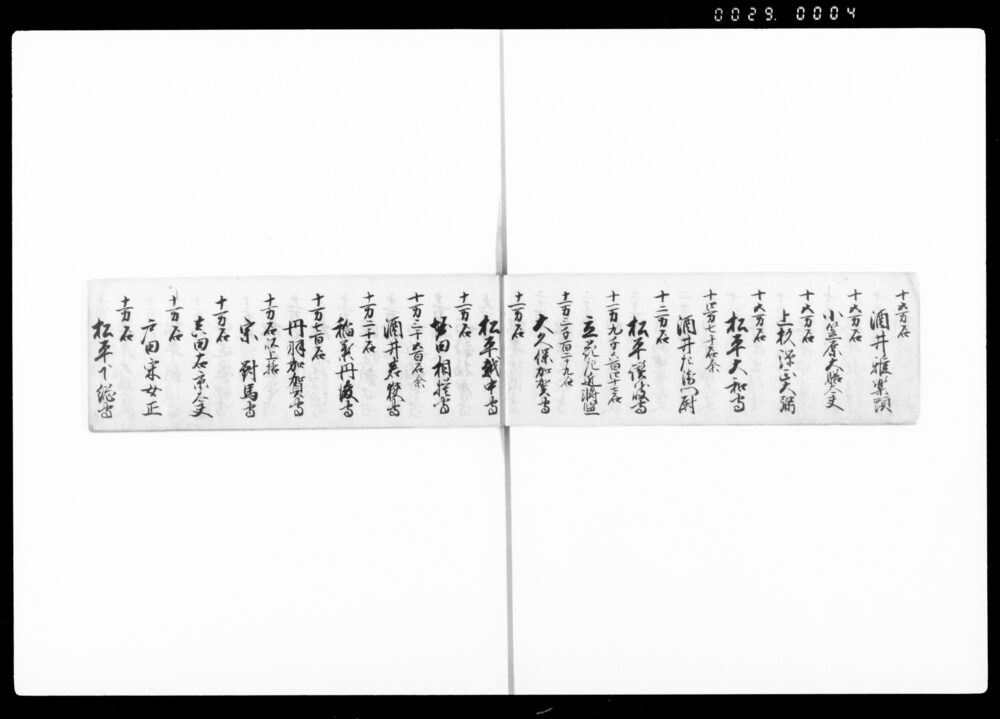 0029. 0004
十五万石
酒井雅楽頭
十五万石
小笠原大膳大夫
十五万石
上杉弾正大弼
十五万石
松平大和守
十四万七十石余
酒井左衛門尉
十二万石
松平讃岐守
十一万九千六百四十三石
立花左近将監
十一万三千百二十九石
大久保加賀守
十一万石
松平越中守
十一万石
堀田相模守
十万三千五百石余
酒井若狭守
十万二千石
稲葉丹後守
十万七百石
丹羽加賀守
十万石以上格
宗対馬守
十万石
真田右京大夫
十万石
戸田采女正
十万石
松平下総守